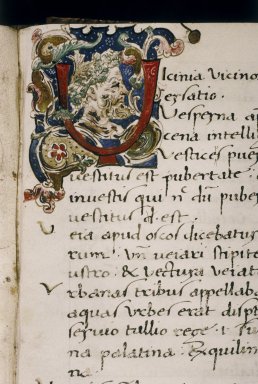 Vicinia Vicino
ersatio.
Vesperna ap
cena intelli
Vestices pue
vestitus est pubertate.
investis qui n̄ dū pube
vestitus q̄. est.
Veia apud oscos dicebatur
rum. Vn̄ veiari stipite
ustro. & Vectura veiat
Vrbanas tribus appellaba
aquas Vrbes erat disp
servio tullio rege.
na palatina. Exquilin
na.